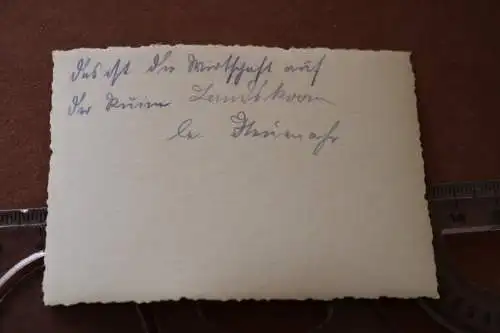 das ist die Wirtschaft auf
der Ruine Landskron
be Neuenahr